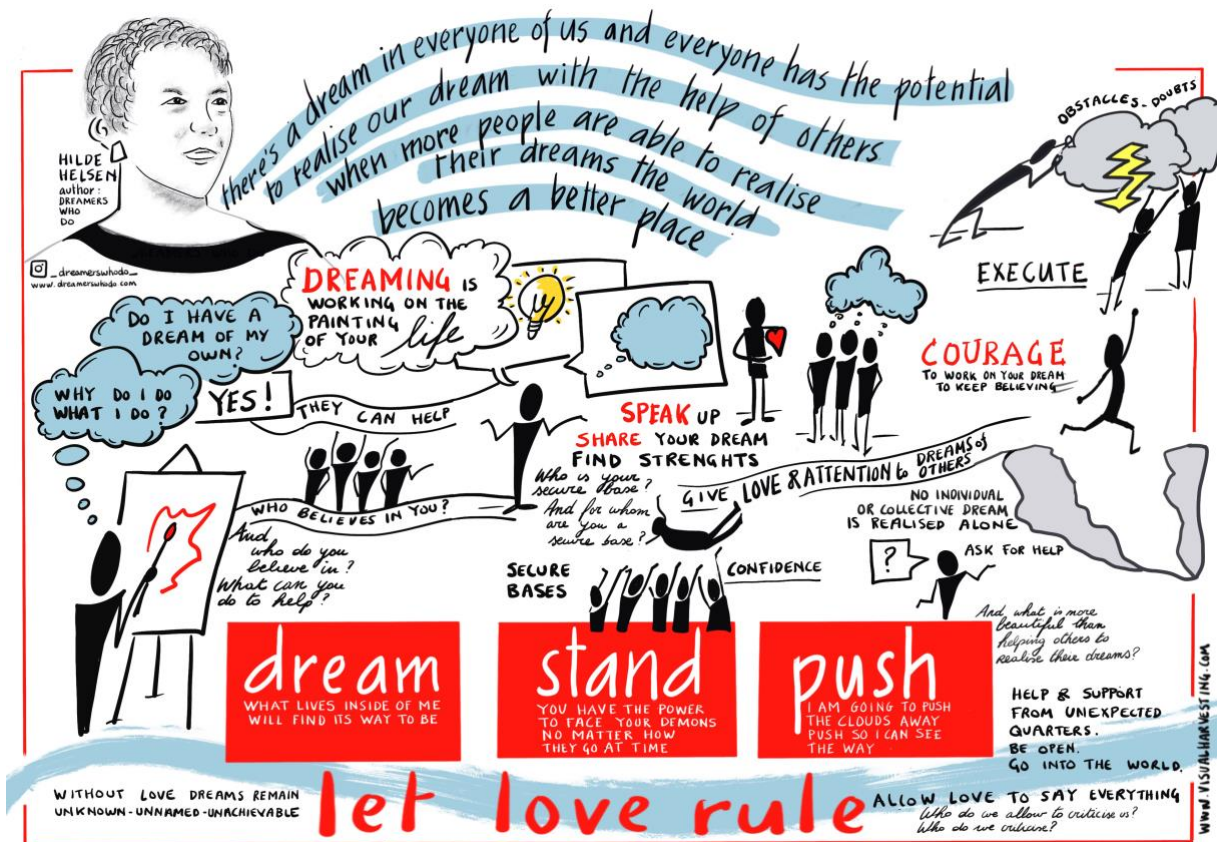 there's a dream in everyone of us and everyone has the potential
to realise our dream with the help of others
when more people are able to realise
their dreams the world
becomes a better place
HILDE
HELSEN
author:
DREAMERS
WHO
DO
_dreamerswhodo_
www.dreamerswhodo.com
OBSTACLES - DOUBTS
EXECUTE
DREAMING IS
WORKING ON THE
PAINTING
OF YOUR life
DO I HAVE A
DREAM OF MY
OWN?
WHY DO I DO
WHAT I DO?
YES!
THEY CAN HELP
WHO BELIEVES IN YOU?
And
who do you
believe in?
What can you
do to help?
SPEAK UP
SHARE YOUR DREAM
FIND STRENGHTS
Who is your
secure base?
And for whom
are you a
secure base?
COURAGE
TO WORK ON YOUR DREAM
TO KEEP BELIEVING
GIVE LOVE & ATTENTION to DREAMS of
OTHERS
NO INDIVIDUAL
OR COLLECTIVE DREAM
IS REALISED ALONE
?
ASK FOR HELP
SECURE
BASES
CONFIDENCE
And what is more
beautiful than
helping others to
realise their dreams?
dream
WHAT LIVES INSIDE OF ME
WILL FIND ITS WAY TO BE
stand
YOU HAVE THE POWER
TO FACE YOUR DEMONS
NO MATTER HOW
THEY GO AT TIME
push
I AM GOING TO PUSH
THE CLOUDS AWAY
PUSH SO I CAN SEE
THE WAY
HELP & SUPPORT
FROM UNEXPECTED
QUARTERS.
BE OPEN.
GO INTO THE WORLD.
WWW.VISUALHARVESTING.COM
WITHOUT LOVE DREAMS REMAIN
UNKNOWN - UNNAMED - UNACHIEVABLE
let love rule
ALLOW LOVE TO SAY EVERYTHING
Who do we allow to criticise us?
Who do we criticise?